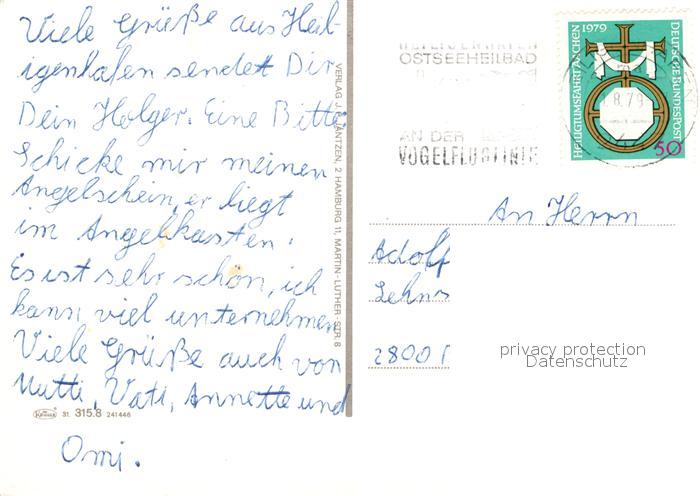 Viele Grüße aus Heil-
igenhafen sendet Dir
Dein Holger. Eine Bitte
Schicke mir meinen
Angelschein, er liegt
im Angelkasten.
Es ist sehr schön, ich
kann viel unternehmen
Viele Grüße auch von
Mutti, Vati, Annette und
Omi.
31. 315.8 241446
VERLAG J. 2 HAMBURG 11, MARTIN-LUTHER-STR. 8
OSTSEEHEILBAD
AN DER
VOGELFLUGLINIE
8.79
1979
HEILIGTUMSFAHRT AACHEN
DEUTSCHE BUNDESPOST
50
An Herrn
Adolf
2800
privacy protection
Datenschutz